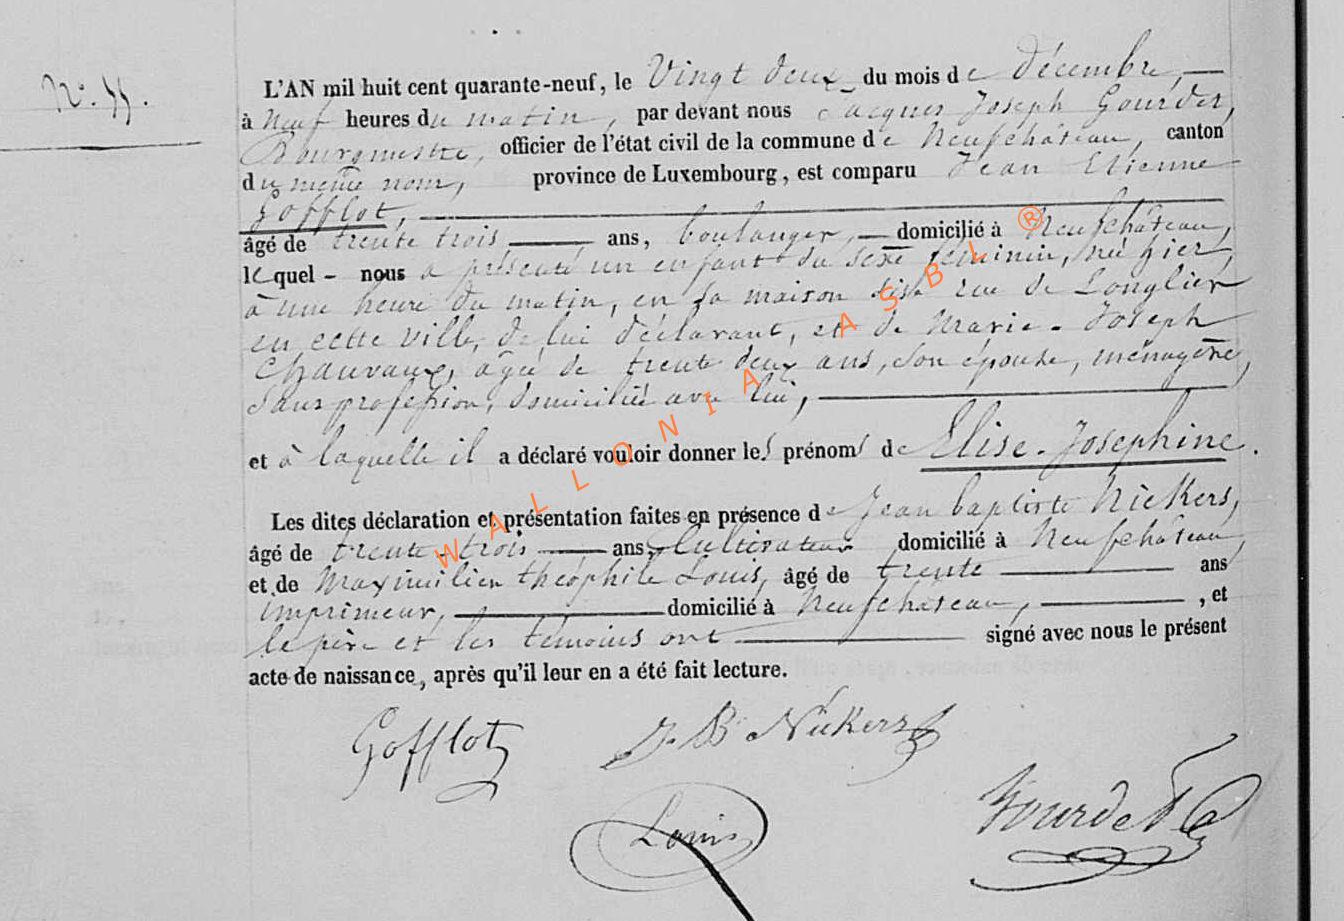 N°. 55.
L'AN mil huit cent quarante-neuf, le Vingt deux du mois de décembre,
à Neuf heures du matin, par devant nous Jacques Joseph Gourdet,
Bourgmestre, officier de l'état civil de la commune de Neufchâteau, canton
du même nom, province de Luxembourg, est comparu Jean Etienne
Gofflot,
âgé de trente trois ans, boulanger, domicilié à Neufchâteau,
lequel nous a présenté un enfant du sexe féminin, né hier,
à une heure du matin, en sa maison sise rue de Longlier
en cette ville, de lui déclarant, et de Marie-Joseph
Chauvaux, agée de trente deux ans, son épouse, ménagère,
sans profession, domiciliée avec lui,
et à laquelle il a déclaré vouloir donner les prénoms de Elise-Josephine.
Les dites déclaration et présentation faites en présence de Jean baptiste Nickers,
âgé de trente-trois ans, Cultivateur domicilié à Neufchâteau,
et de Maximilien théophile Louis, âgé de trente ans
imprimeur, domicilié à Neufchâteau, , et
le père et les témoins ont signé avec nous le présent
acte de naissance, après qu'il leur en a été fait lecture.
Gofflot J. B. Nickers
Louis Gourdet
WALLONIA ASBL ®